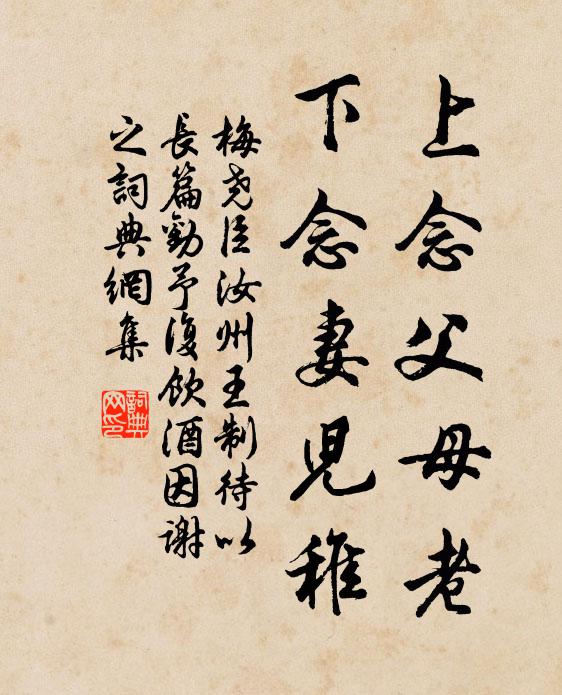 上念父母老
下念妻児稚
梅堯臣汝州王制待以
長篇勸予復飲酒因謝
之詞典網集
詞典網印